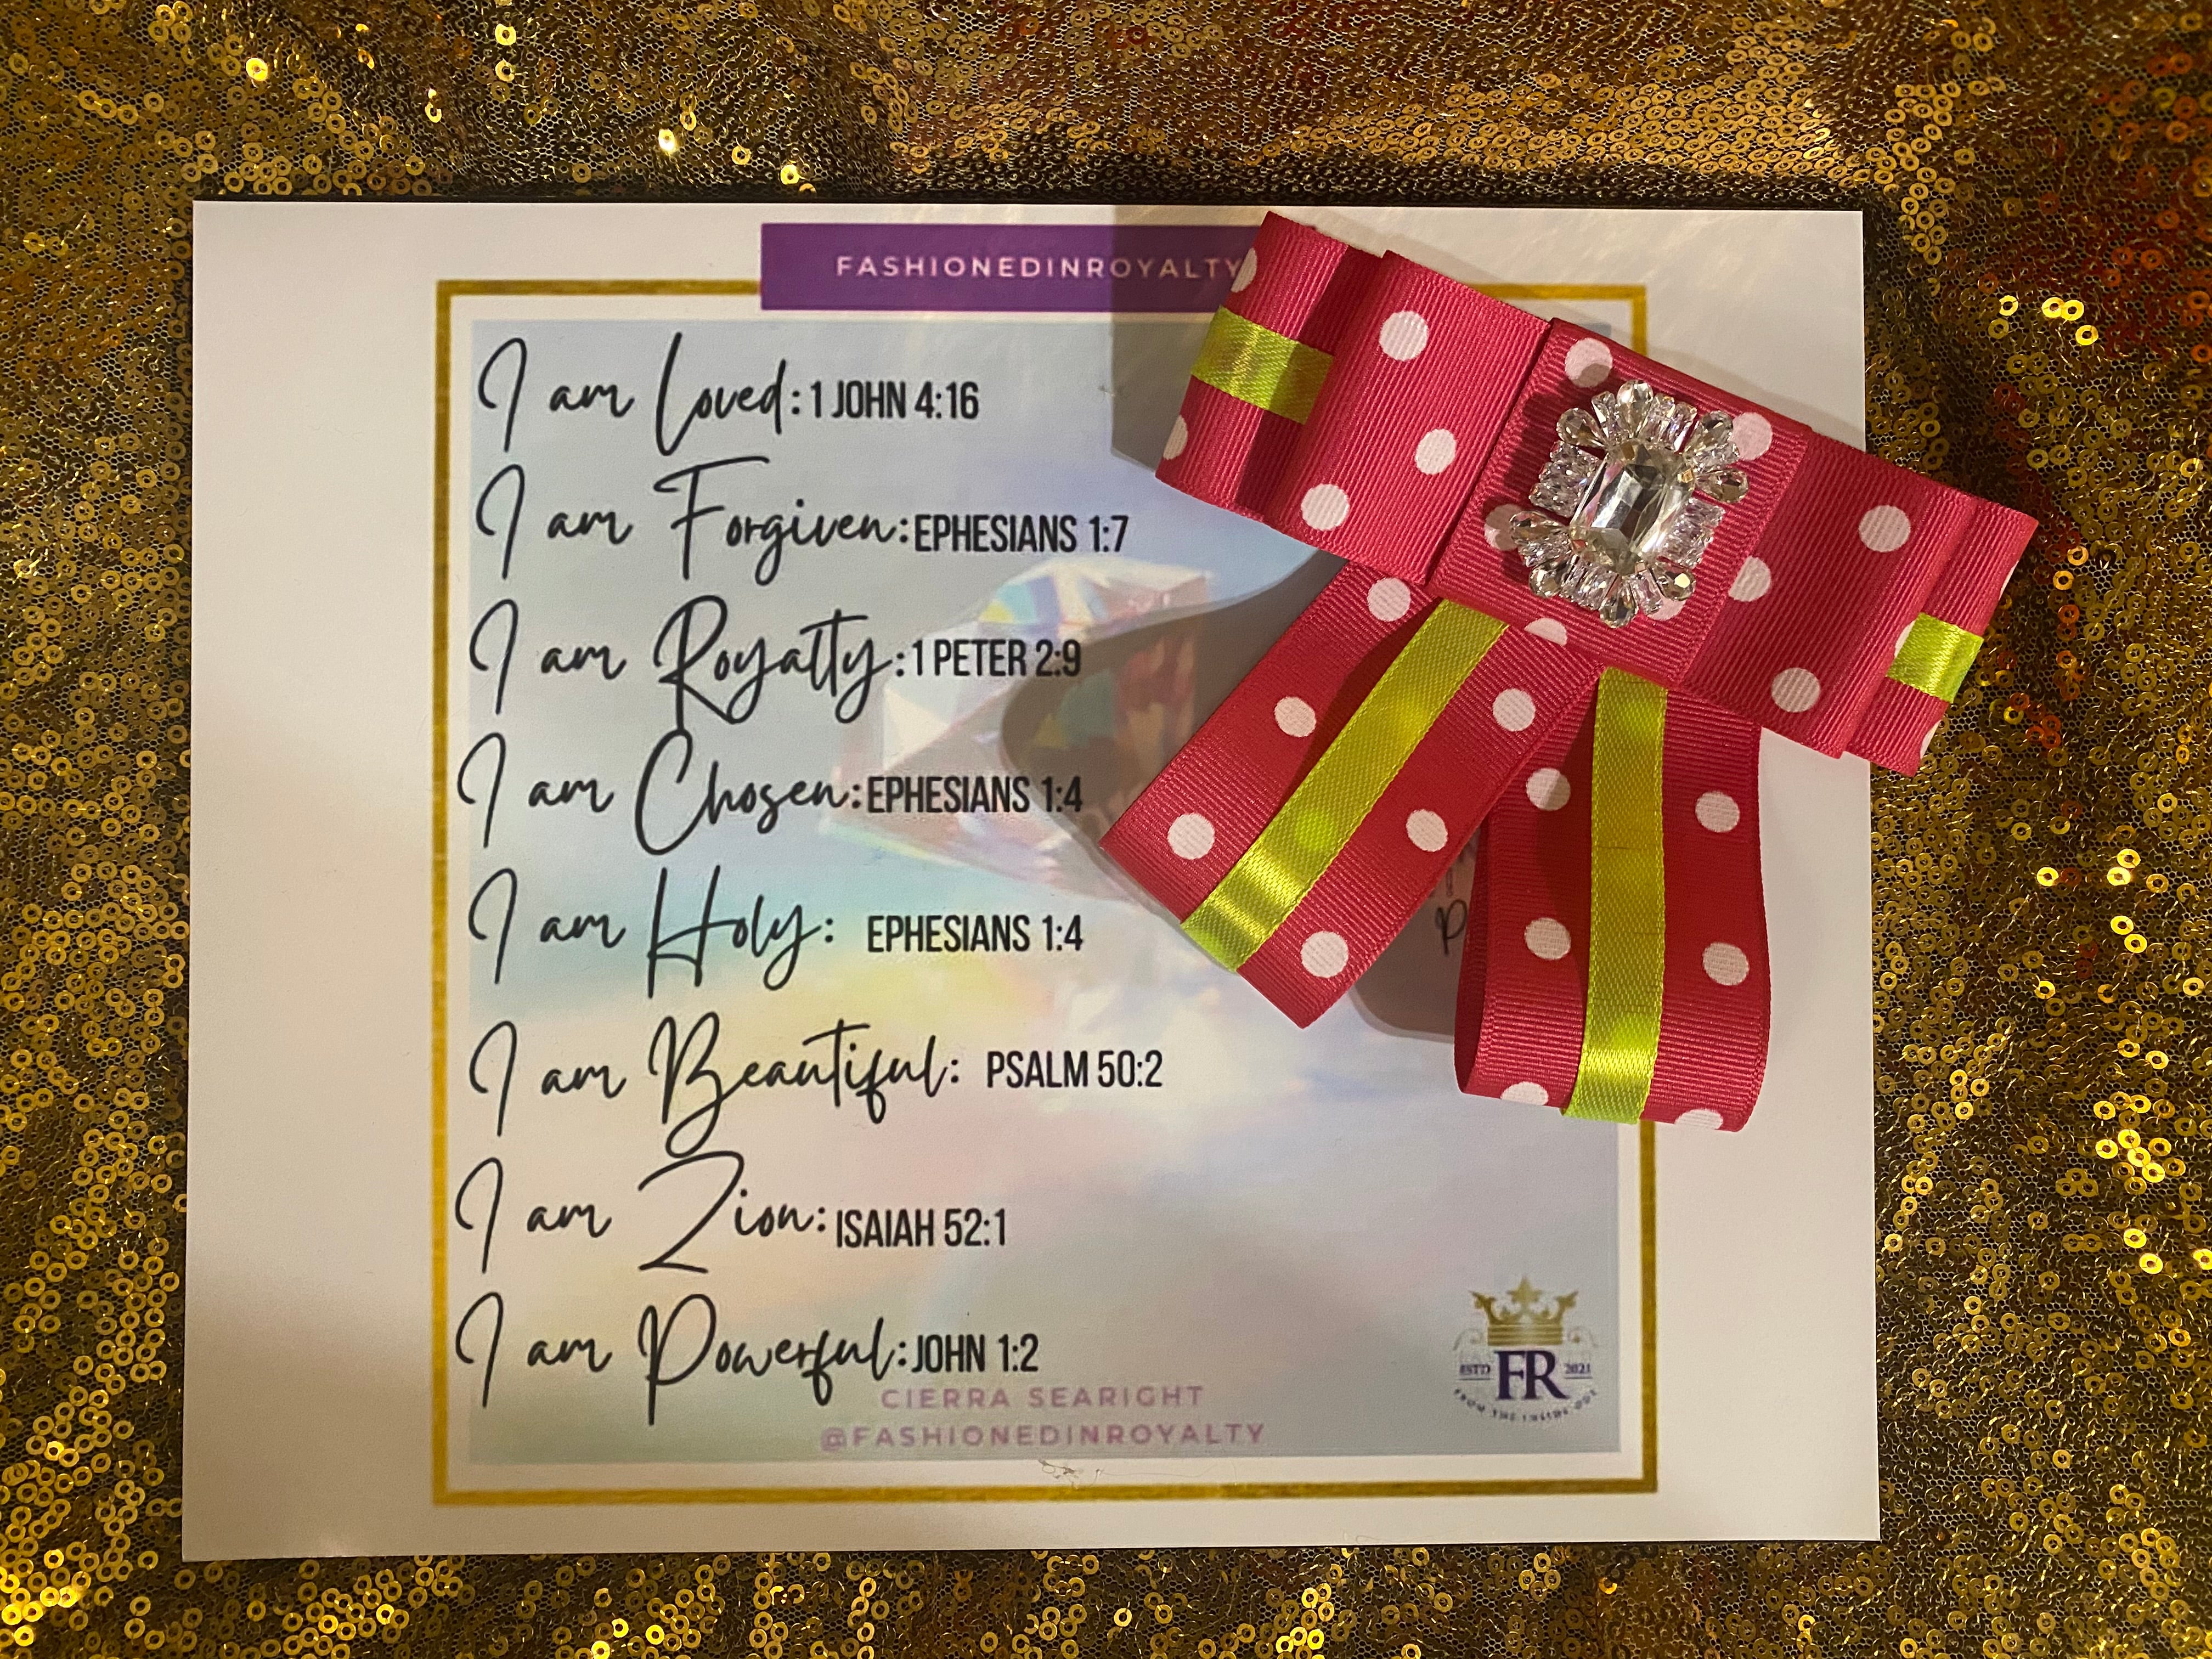 FASHIONEDINROYALTY
I am Loved: 1 JOHN 4:16
I am Forgiven: EPHESIANS 1:7
I am Royalty: 1 PETER 2:9
I am Chosen: EPHESIANS 1:4
I am Holy: EPHESIANS 1:4
I am Beautiful: PSALM 50:2
I am Zion: ISAIAH 52:1
I am Powerful: JOHN 1:2
CIERRA SEARIGHT
@FASHIONEDINROYALTY
ESTD FR 2021
FROM THE INSIDE OUT